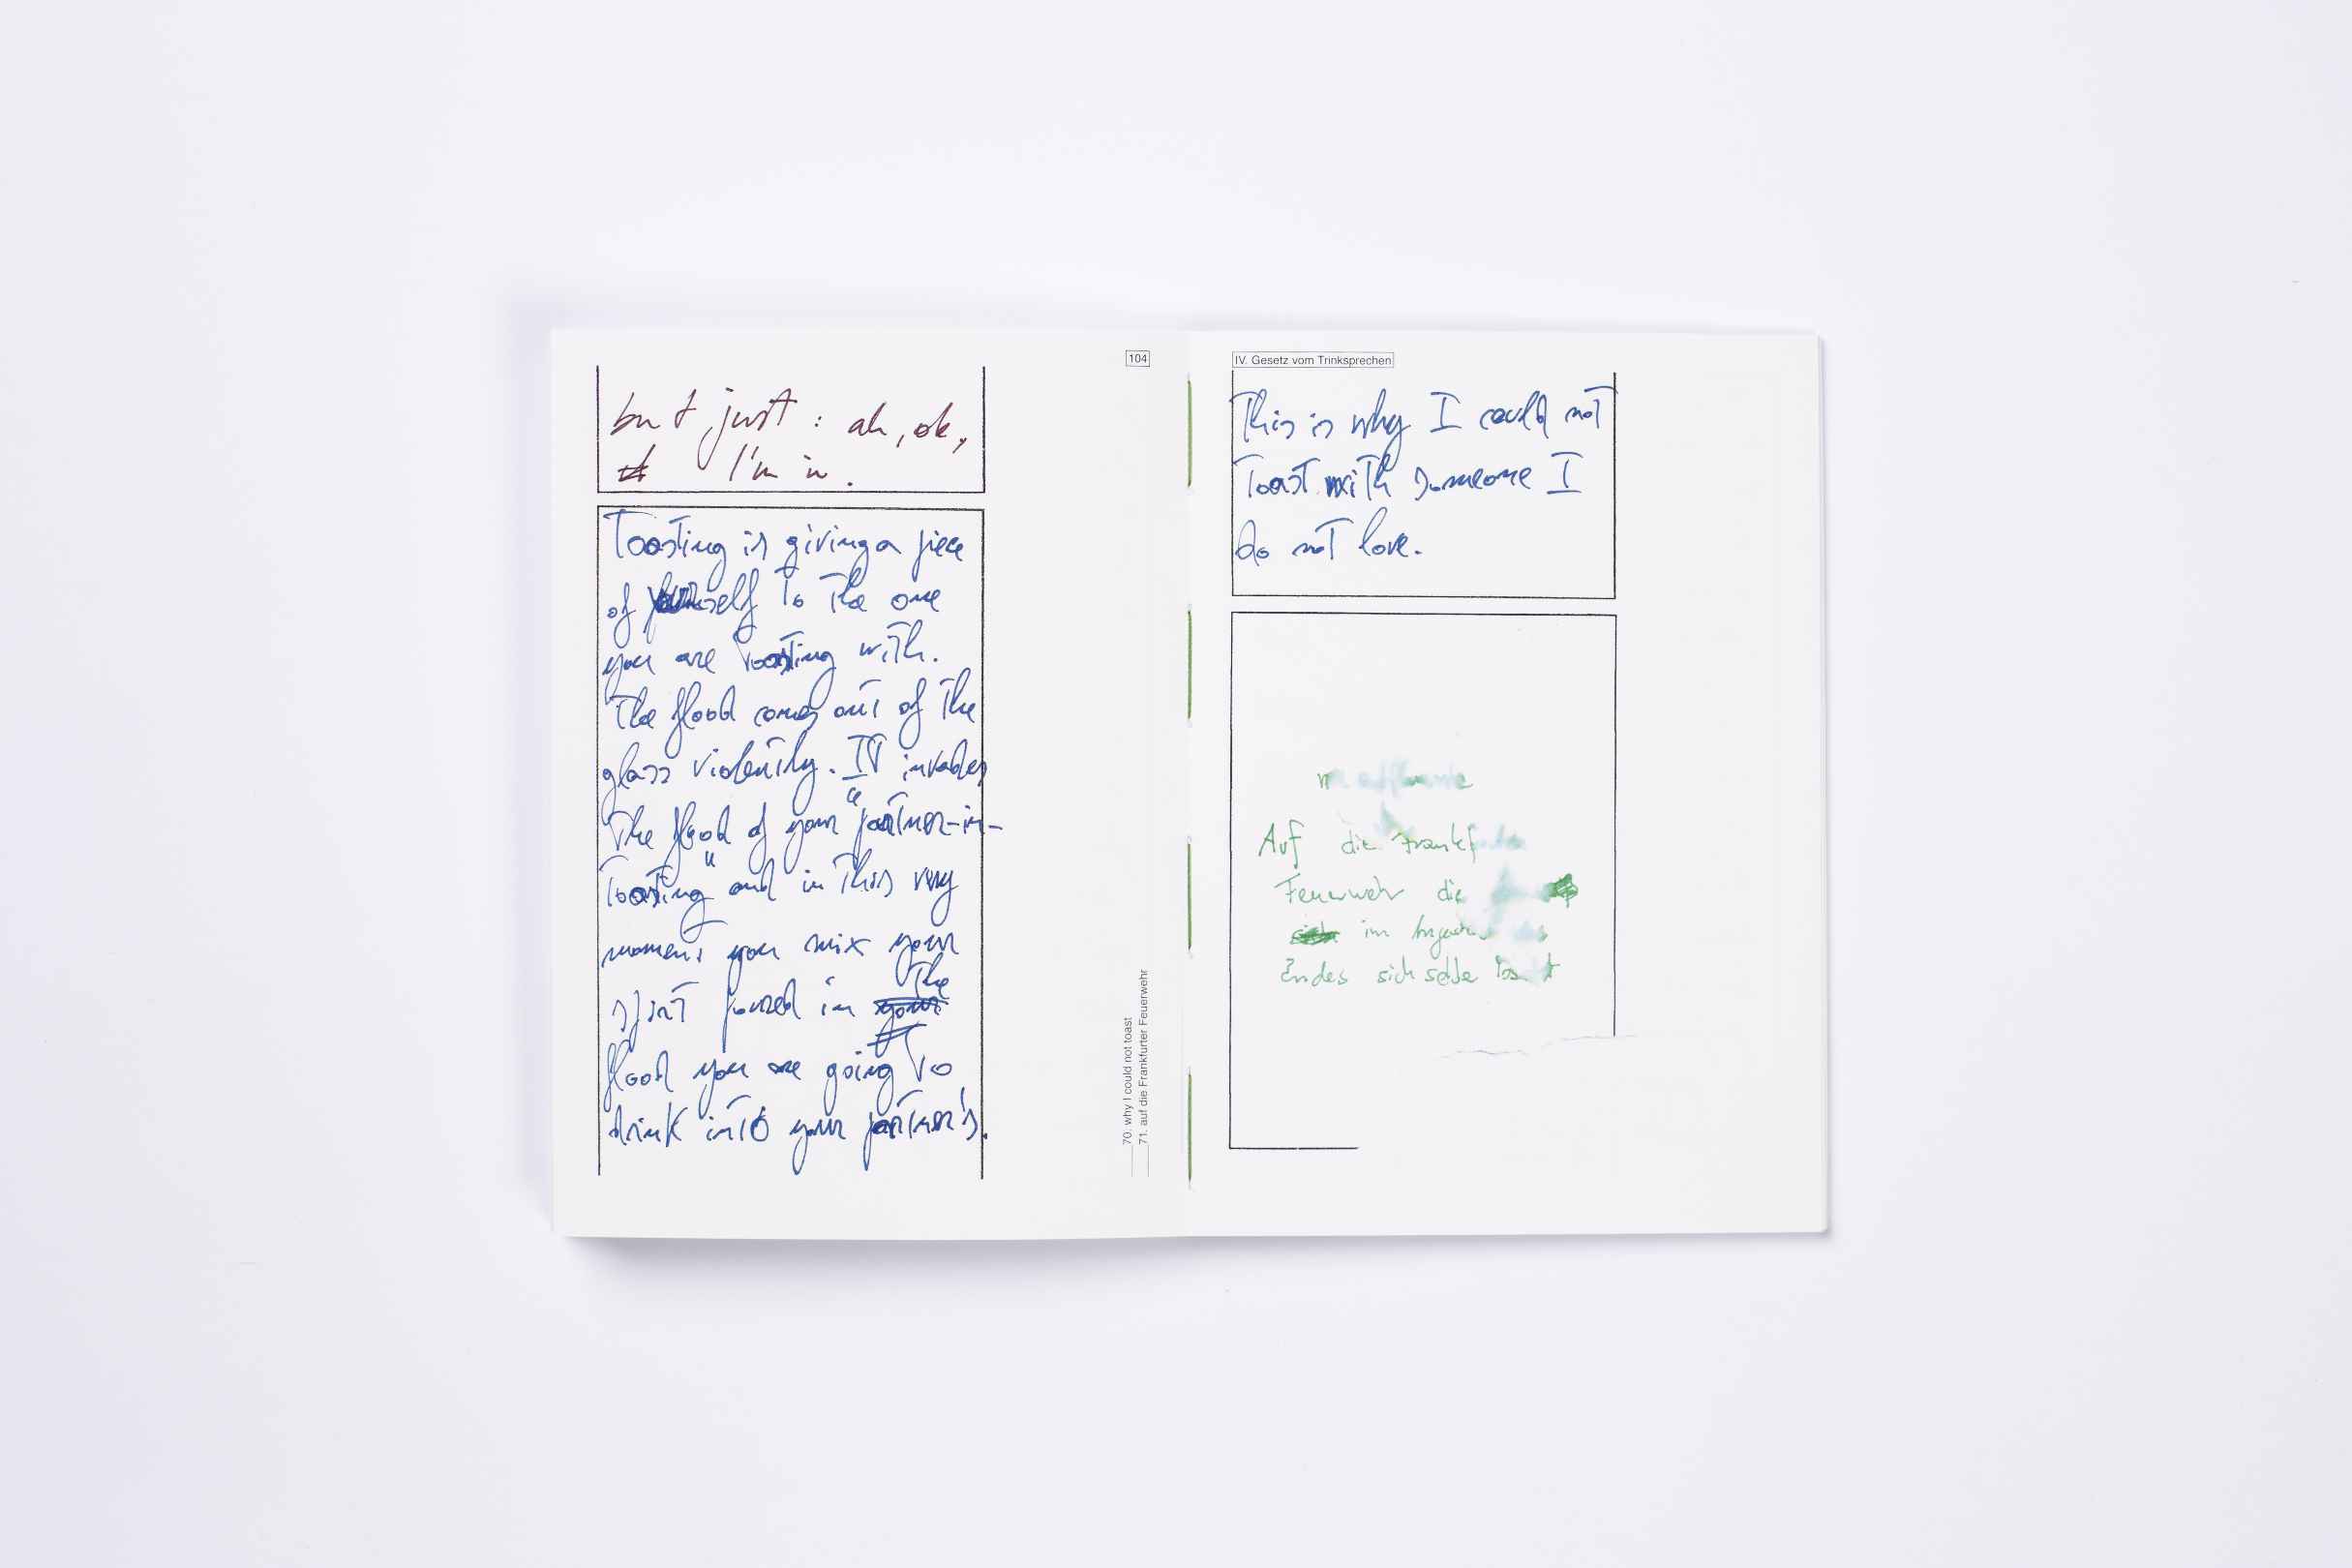 104
but just : ah, ok,
I'm in.
Toasting is giving a piece
of yourself to the one
you are toasting with.
The flood comes out of the
glass violently. It invades
the flood of your "partner-in-
toasting" and in this very
moment you mix your
spirit poured in the
flood you are going to
drink into your partner's.
70. why I could not toast
71. auf die Frankfurter Feuerwehr
IV. Gesetz vom Trinksprechen
This is why I could not
toast with someone I
do not love.
Auf die
Feuerwehr die
im
Endes sich selbe